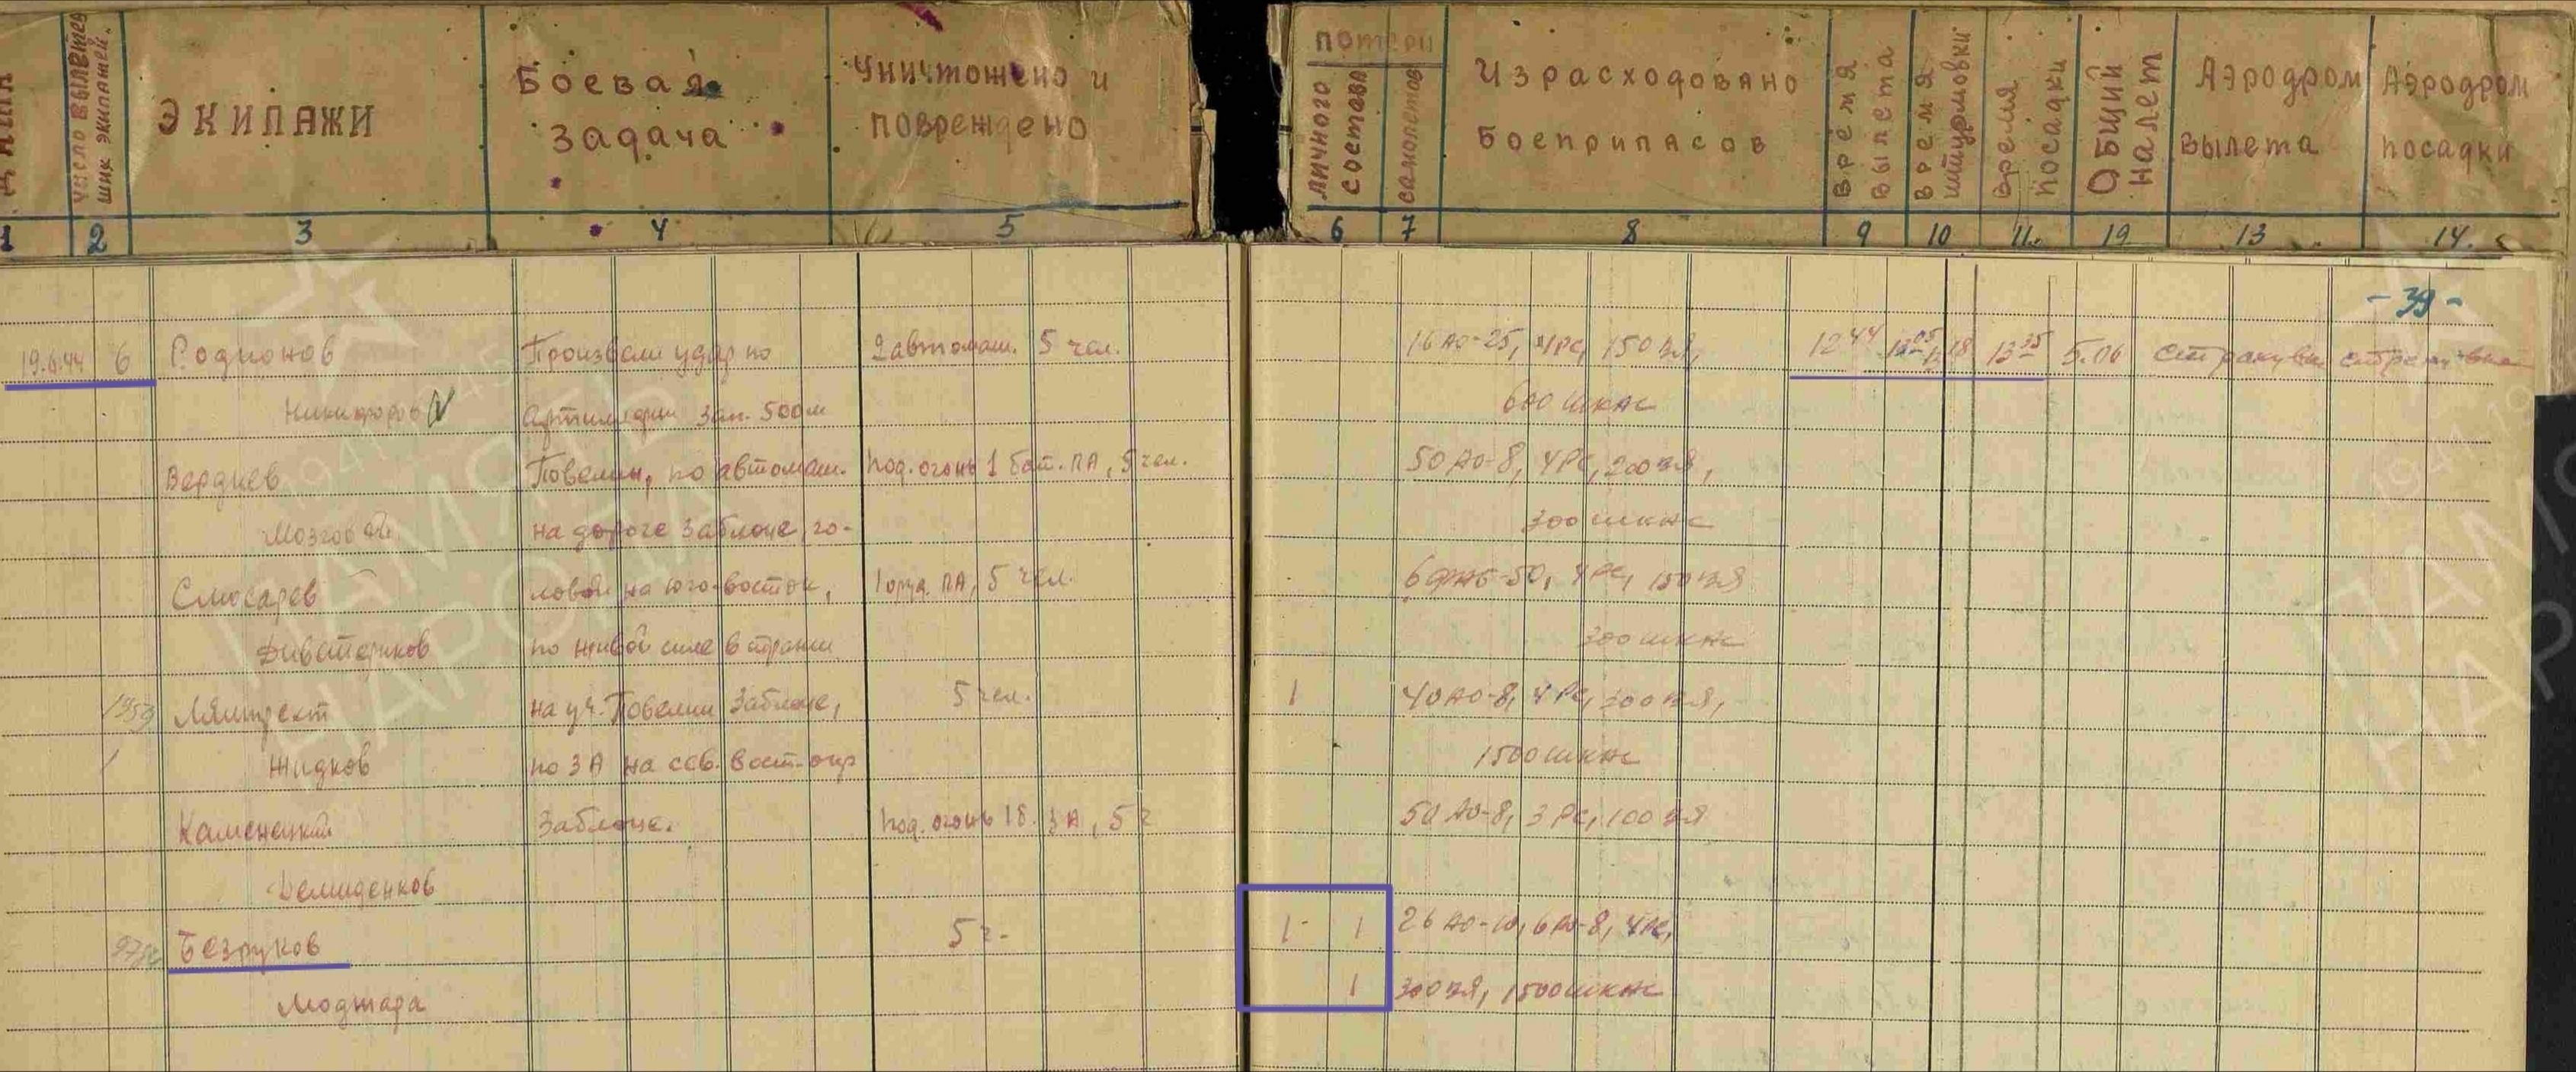 Число вылетев
ших экипажей.
ЭКИПАЖИ
Боевая
Задача
Уничтожено и
повреждено
потери
личного
состава
самолетов
Израсходовано
Боеприпасов
время
вылета
время
штурмовки
время
посадки
Общий
налет
Аэродром
вылета
Аэродром
посадки
1 2 3 4 5 6 7 8 9 10 11. 12 13 14.
- 39 -
19.6.44 6 Родионов Произвели удар по 2 автомаш. 5 чел. 16 АО-25, 4РС, 150 ВЯ, 12 44 13 35 5.06
Никифоров артиллерии зап. 500м 600 шкас
Вердиев Повелин, по автомаш. под. огонь 1 бат. ПА, 5 чел. 50 АО-8, 4 РС, 200 ВЯ,
Мозговой на дороге Заблоце, го- 300 шкас
Слюсарев ловой на юго-восток, 1 оруд. ПА, 5 чел. 6 ФАБ-50, 4 РС, 150 ВЯ
по живой силе в транш 300 шкас
на уч. Повелин Заблоце, 5 чел. 1 40 АО-8, 4 РС, 300 ВЯ,
Жидков по ЗА на сев. вост. окр 1500 шкас
Каменский Заблоце. под. огонь 1 б. ЗА, 5 ч 50 АО-8, 3 РС, 100 ВЯ
Демиденков
Безруков 5 ч. 1 - 1 26 АО-10, 6 АО-8, 4 РС,
Моджара 1 300 ВЯ, 1500 шкас